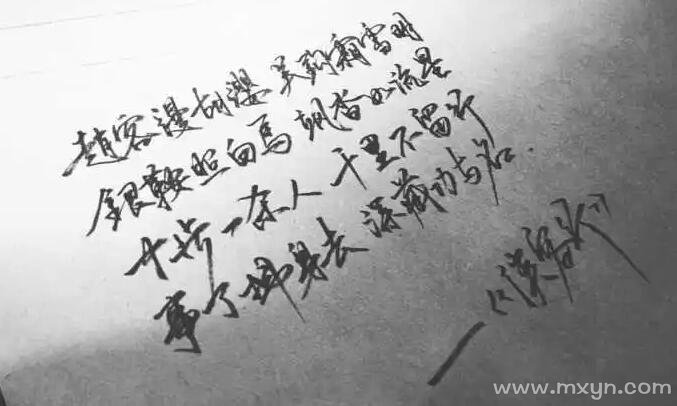 趙客漫胡缨 吴钩霜雪明
银鞍照白马 飒沓如流星
十步一杀人 千里不留行
事了拂身去 深藏功与名.
—《侠客行》
www.mxyn.com